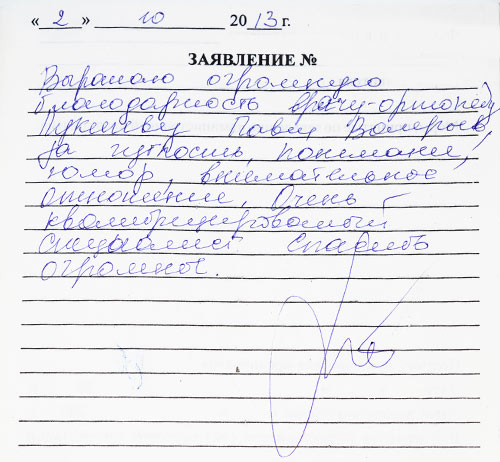 « 2 » 10 2013 г.
ЗАЯВЛЕНИЕ №
Выражаю огромную
благодарность врачу-ортопеду
Павлу Валерьев
за чуткость, понимание,
юмор, внимательное
отношение. Очень
квалифицированный
специалист Спасибо
огромное.